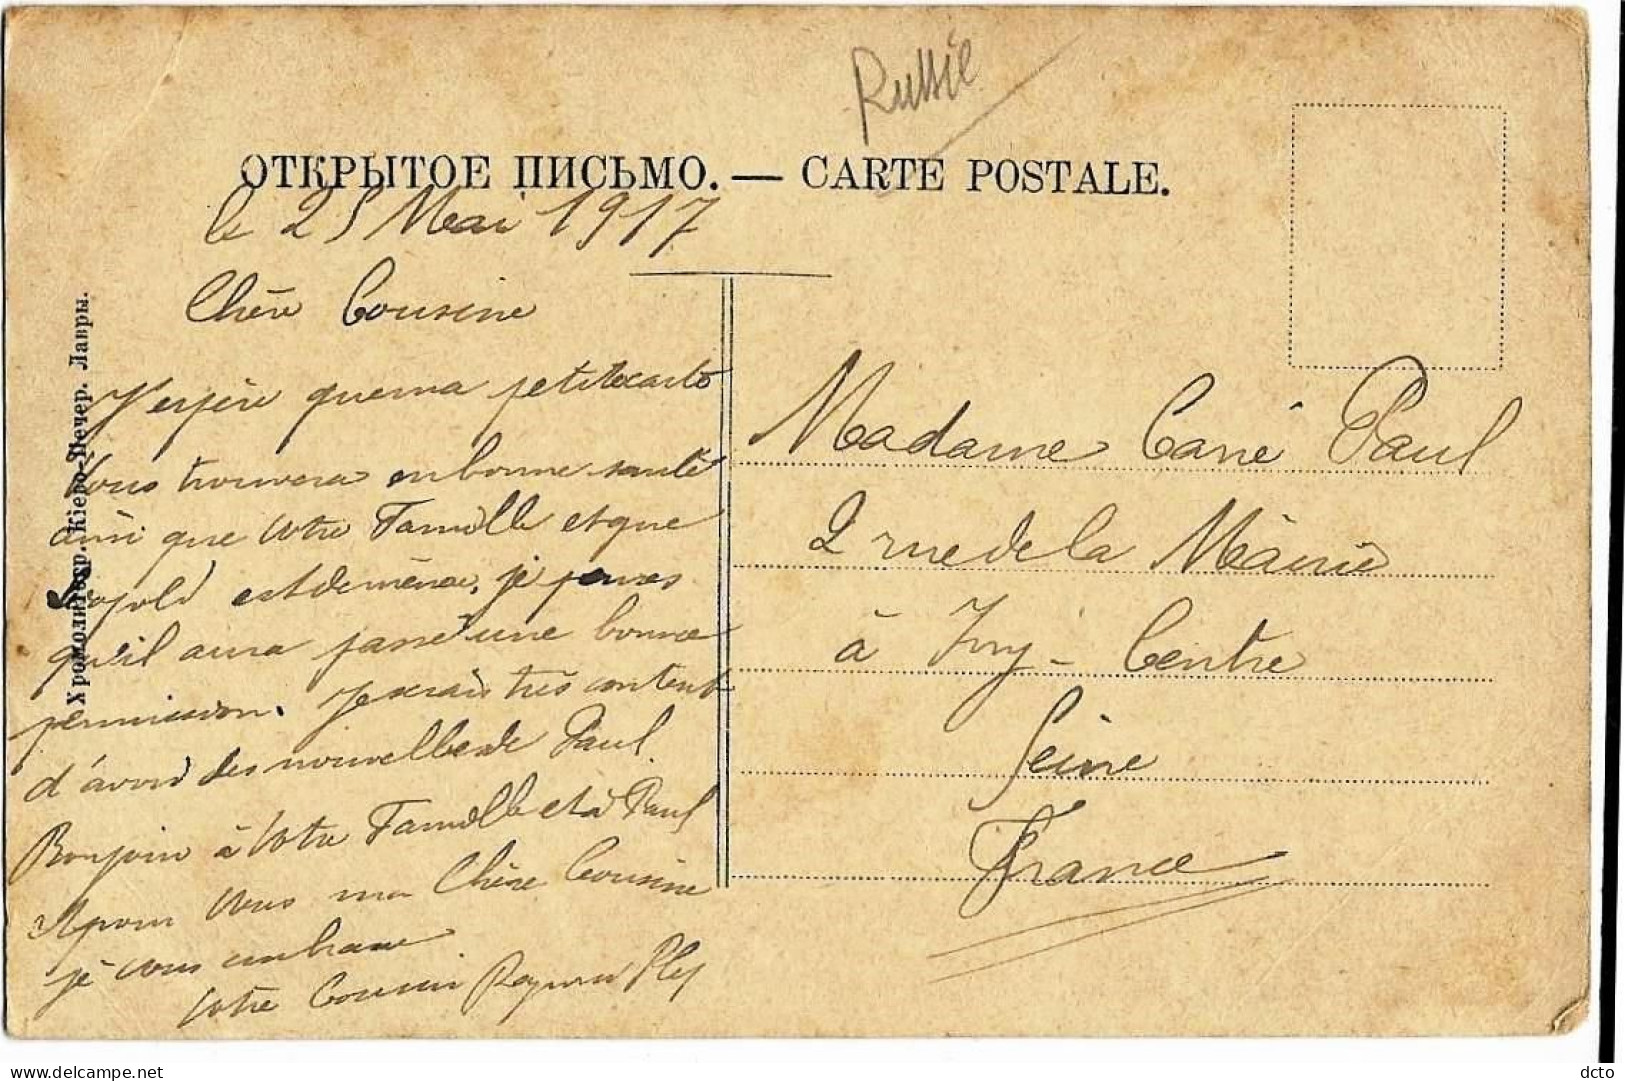 Russie
ОТКРЫТОЕ ПИСЬМО. — CARTE POSTALE.
le 25 Mai 1917
Chère Cousine
J'espère que ma petite carte
vous trouvera en bonne santé
ainsi que votre Famille et que
est de même, je penses
qu'il aura passé une bonne
permission. Je serais très content
d'avoir des nouvelles de Paul.
Bonjour à votre Famille et à Paul
pour vous ma Chère Cousine
je vous embrasse
votre Cousin
Хромолитогр. Кіево-Печер. Лавры.
Madame Cané Paul
2 rue de la Mairie
à Ivry-Centre
Seine
France
delcampe.net
dcto